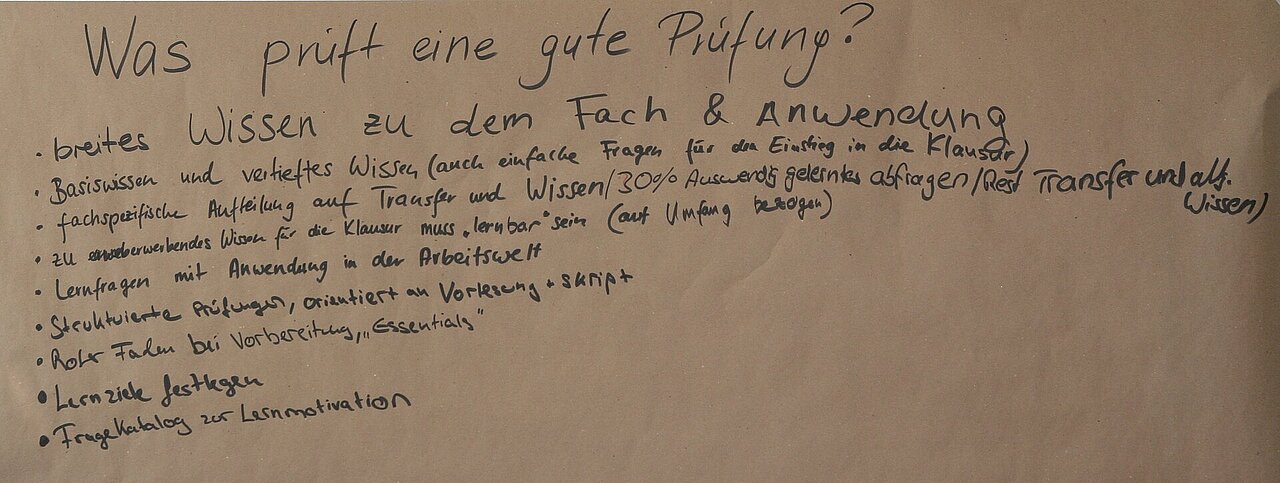 Was prüft eine gute Prüfung?
• breites Wissen zu dem Fach & Anwendung
• Basiswissen und vertieftes Wissen (auch einfache Fragen für den Einstieg in die Klausur)
• fachspezifische Aufteilung auf Transfer und Wissen/30% Auswendig gelerntes abfragen/Rest Transfer und allg.
Wissen)
• zu erwerbendes Wissen für die Klausur muss „lernbar" sein (auf Umfang bezogen)
• Lernfragen mit Anwendung in der Arbeitswelt
• Strukturierte Prüfungen, orientiert an Vorlesung + Skript
• Roter Faden bei Vorbereitung, „Essentials"
• Lernziele festlegen
• Fragekatalog zur Lernmotivation